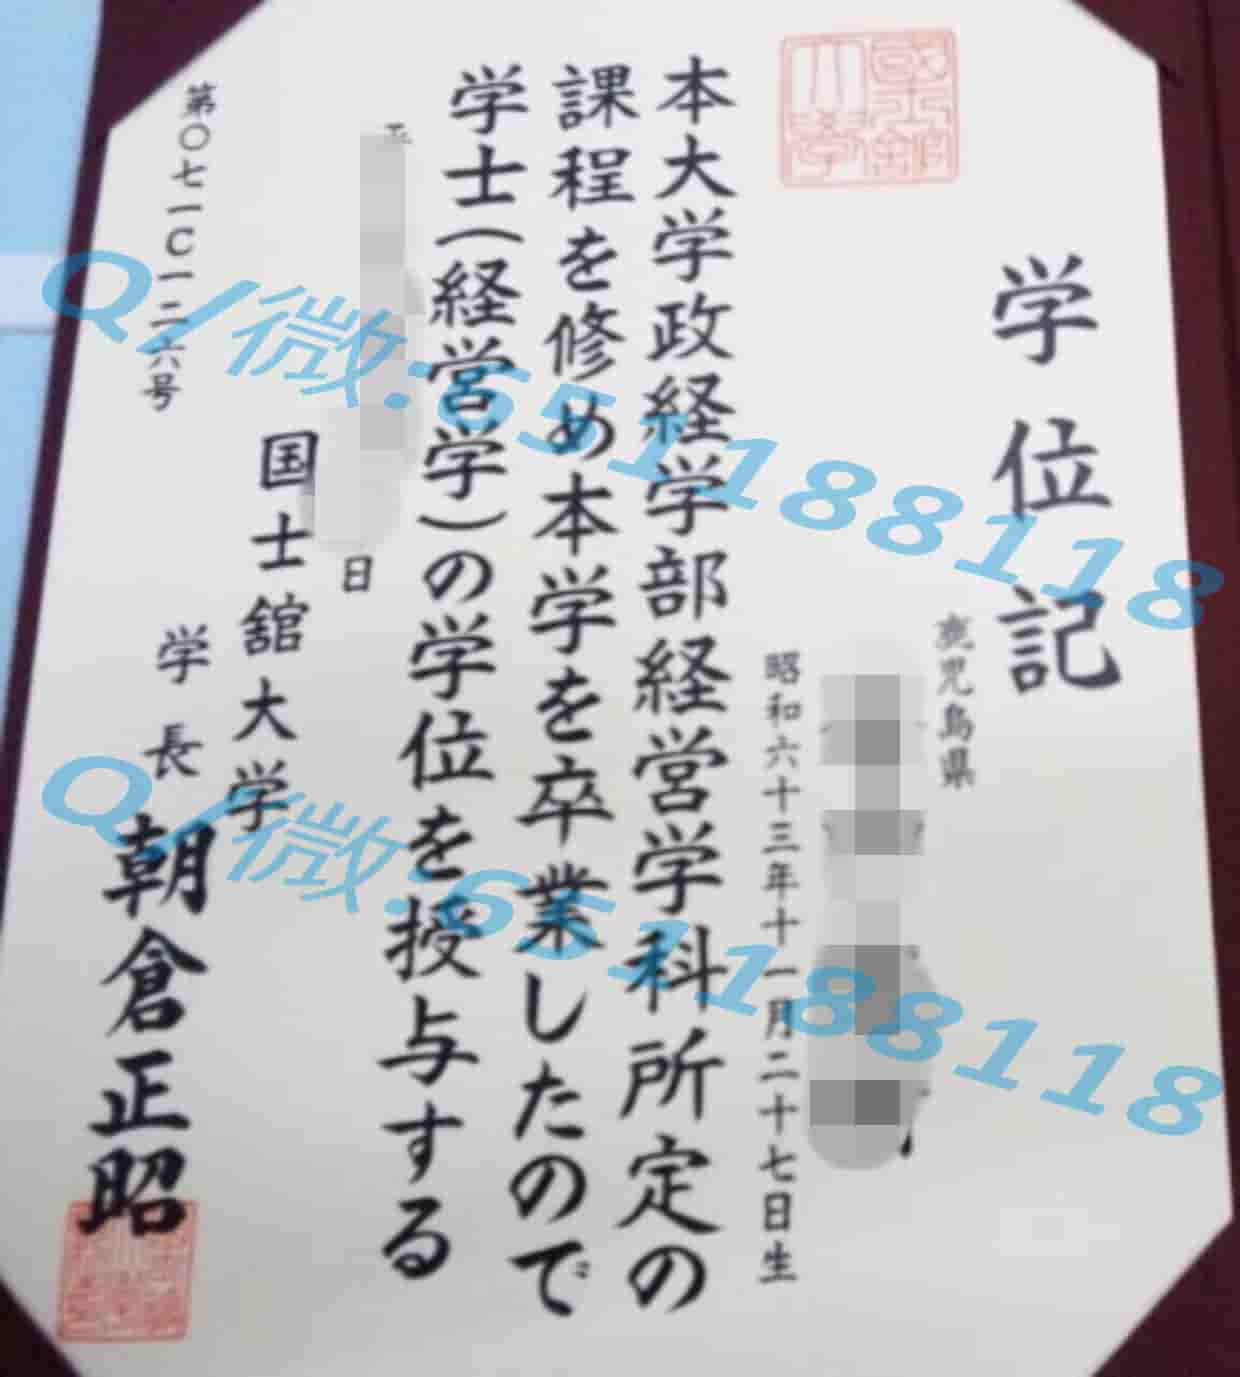 学位記
鹿児島県
昭和六十三年十一月二十七日生
国士舘大学
本大学政経学部経営学科所定の
課程を修め本学を卒業したので
学士(経営学)の学位を授与する
日
国士舘大学
学長 朝倉正昭
第〇七一C一二六号
Q/微:651188118
Q/微:651188118